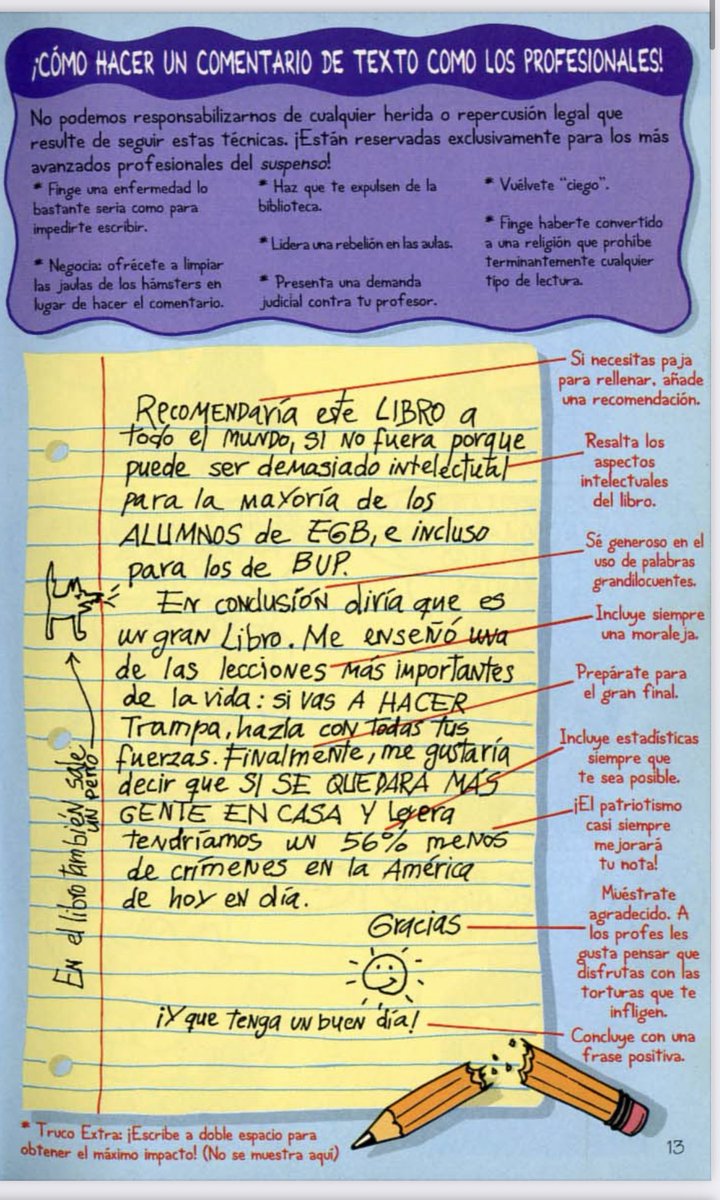 ¡CÓMO HACER UN COMENTARIO DE TEXTO COMO LOS PROFESIONALES!
No podemos responsabilizarnos de cualquier herida o repercusión legal que
resulte de seguir estas técnicas. ¡Están reservadas exclusivamente para los más
avanzados profesionales del suspenso!
* Finge una enfermedad lo
bastante seria como para
impedirte escribir.
* Negocia: ofrécete a limpiar
las jaulas de los hámsters en
lugar de hacer el comentario.
* Haz que te expulsen de la
biblioteca.
* Lidera una rebelión en las aulas.
* Presenta una demanda
judicial contra tu profesor.
* Vuélvete “ciego”.
* Finge haberte convertido
a una religión que prohíbe
terminantemente cualquier
tipo de lectura.
RECOMENDaría este LIBRO a
todo el MUNDO, SI NO fuera porque
puede ser demasiado intelectual
para la mayoría de los
ALUMNOS de EGB, e incluso
para los de BUP.
En conclusión diría que es
un gran Libro. Me enseñó una
de las lecciones más importantes
de la vida: si vas A HACER
Trampa, hazla con todas tus
fuerzas. Finalmente, me gustaría
decir que SI SE QUEDARA MÁS
GENTE EN CASA Y Leyera
tendríamos un 56% menos
de crímenes en la América
de hoy en día.
Gracias
¡Y que tenga un buen día!
En el libro también sale
un perro
Si necesitas paja
para rellenar, añade
una recomendación.
Resalta los
aspectos
intelectuales
del libro.
Sé generoso en el
uso de palabras
grandilocuentes.
Incluye siempre
una moraleja.
Prepárate para
el gran final.
Incluye estadísticas
siempre que
te sea posible.
¡El patriotismo
casi siempre
mejorará
tu nota!
Muéstrate
agradecido. A
los profes les
gusta pensar que
disfrutas con las
torturas que te
infligen.
Concluye con una
frase positiva.
* Truco Extra: ¡Escribe a doble espacio para
obtener el máximo impacto! (No se muestra aquí)
13